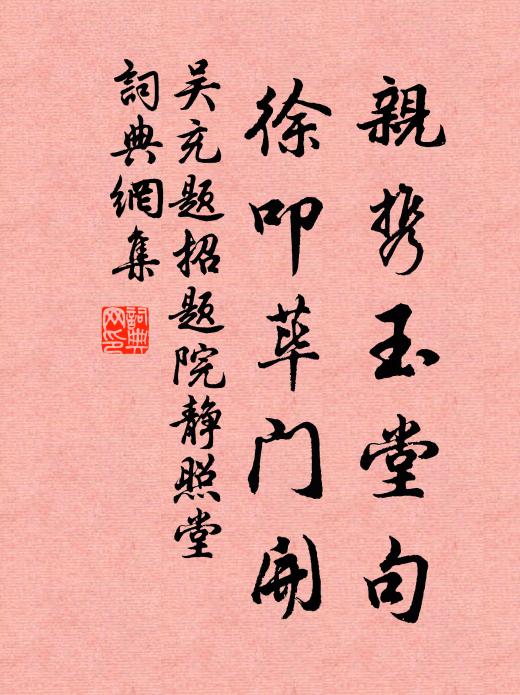 親携玉堂句
徐叩荜门開
吴充题招题院静照堂
詞典網集
詞典
网印